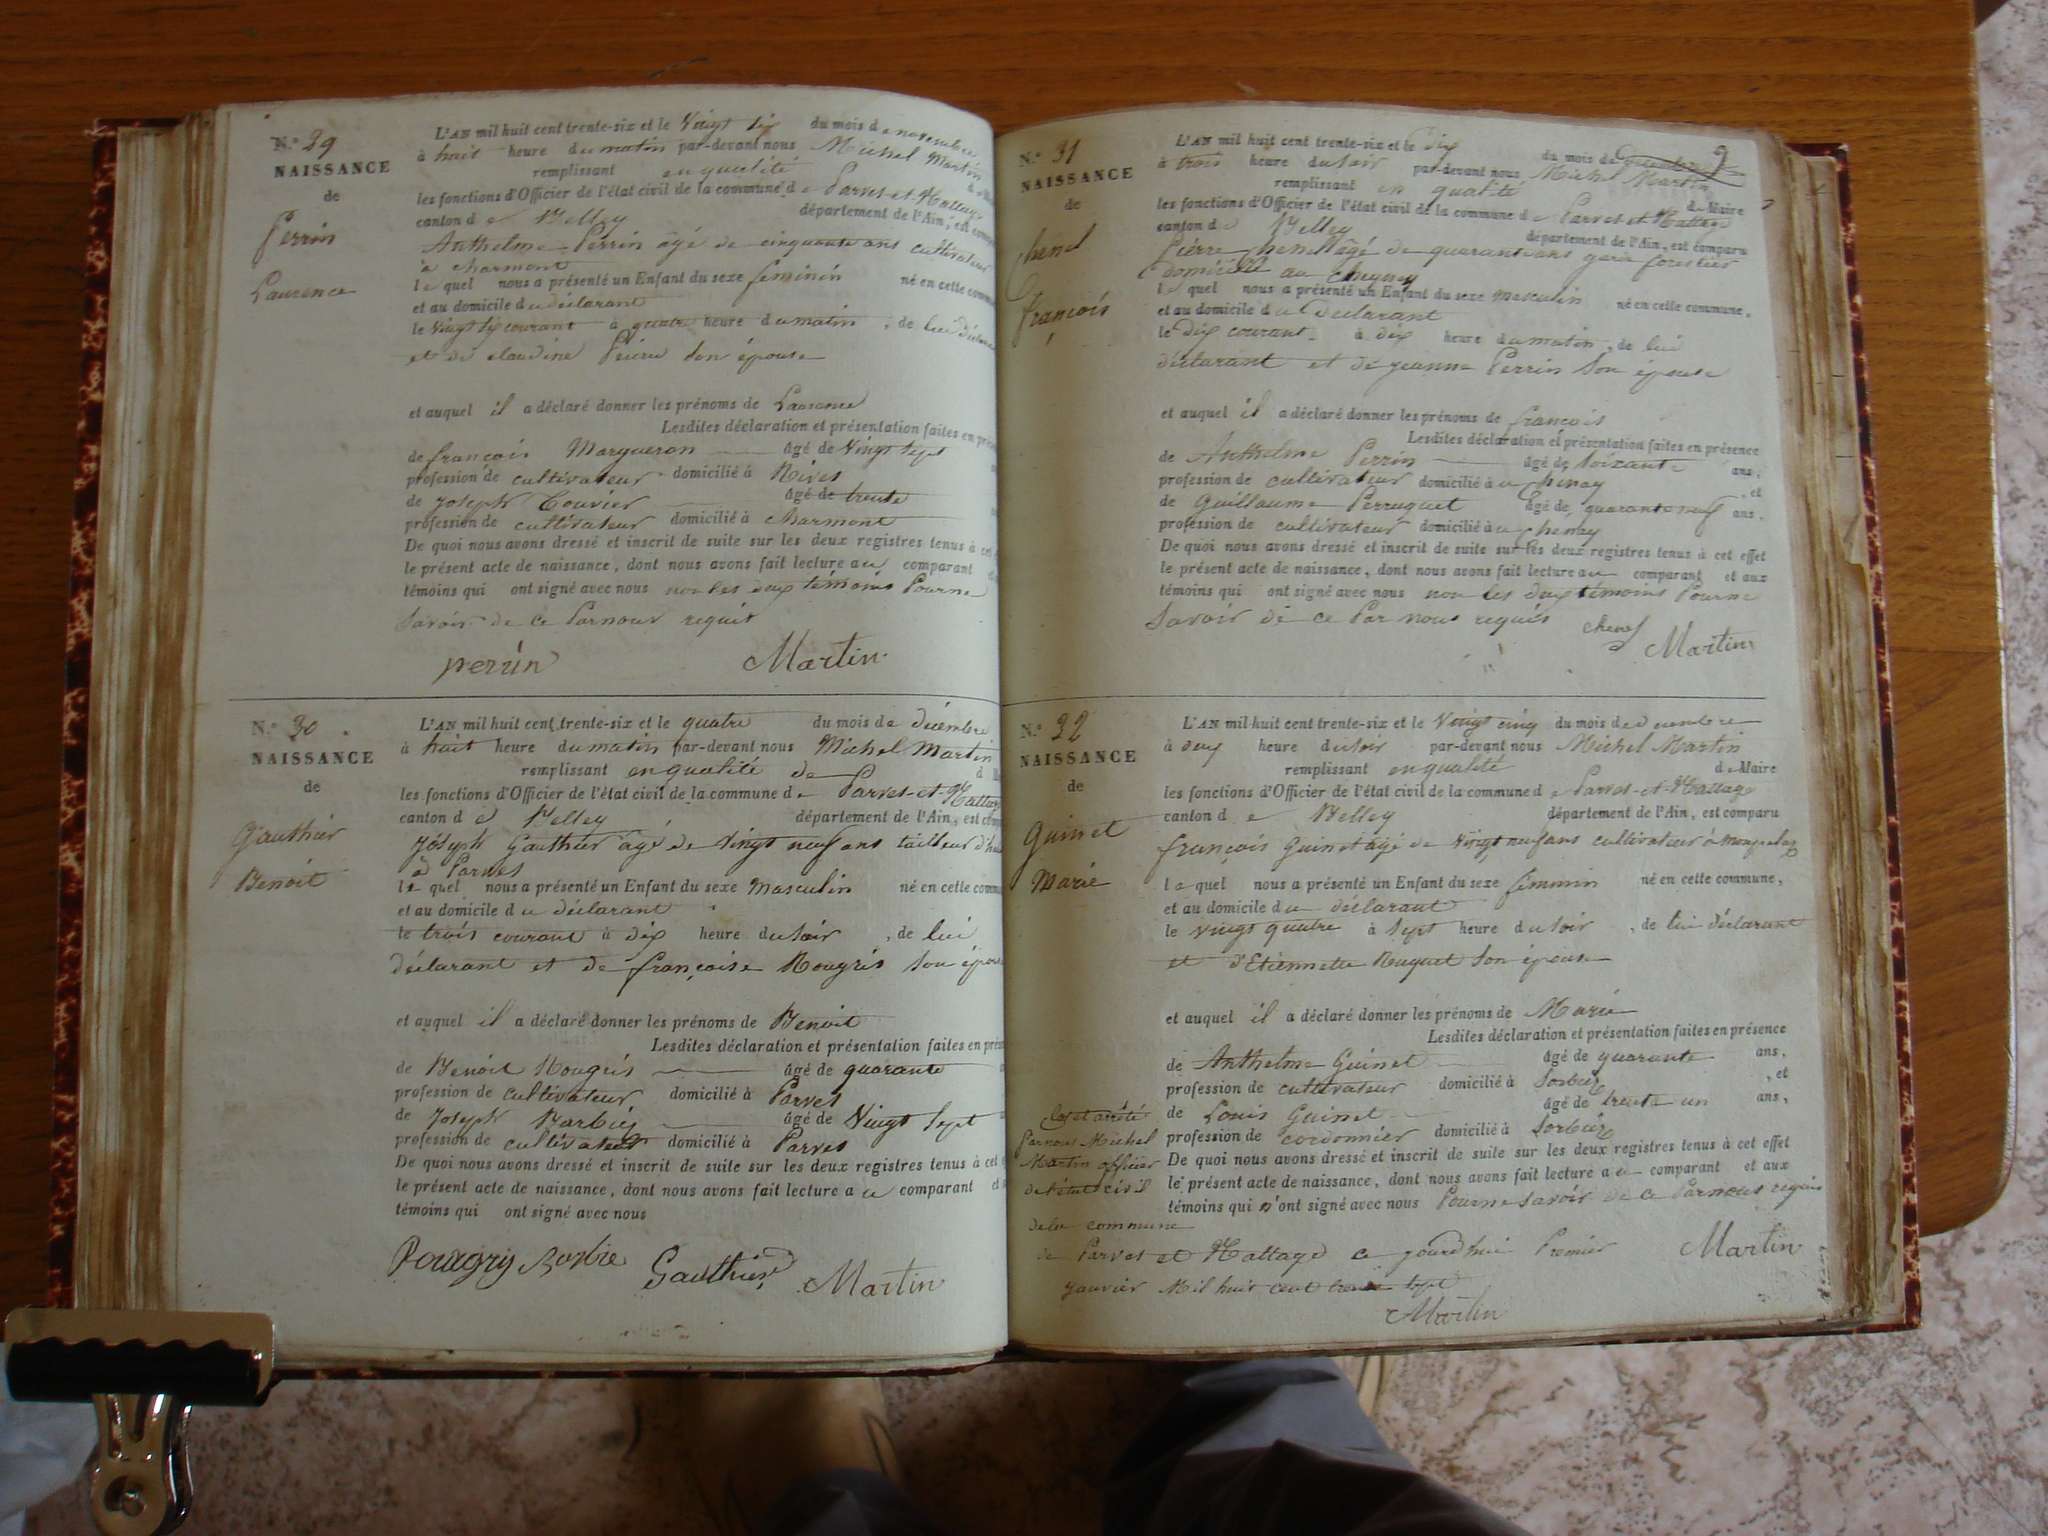 N.° 29
NAISSANCE
de
Perrin
Laurence
L'AN mil huit cent trente-six et le Vingt six du mois de novembre
à huit heure du matin par-devant nous Michel Martin
remplissant en qualité
les fonctions d'Officier de l'état civil de la commune de Parves-et-Nattage
canton de Belley département de l'Ain, est
Anthelme Perrin âgé de cinquante ans cultivateur
à charmont
le quel nous a présenté un Enfant du sexe feminin né en cette
et au domicile du déclarant
le Vingt six courant à quatre heure du matin, de lui
et de claudine son épouse
et auquel il a déclaré donner les prénoms de Laurence
Lesdites déclaration et présentation faites en
de françois Margueron âgé de Vingt sept
profession de cultivateur domicilié à
de Joseph âgé de trente
profession de cultivateur domicilié à charmont
De quoi nous avons dressé et inscrit de suite sur les deux registres tenus à cet
le présent acte de naissance, dont nous avons fait lecture au comparant
témoins qui ont signé avec nous non les deux témoins Pour ne
Savoir de ce Par nous requis
perrin Martin
N.° 30
NAISSANCE
de
Gauthier
Benoit
L'AN mil huit cent trente-six et le quatre du mois de décembre
à huit heure du matin par-devant nous Michel Martin
remplissant en qualité de
les fonctions d'Officier de l'état civil de la commune de Parves-et-Nattage
canton de Belley département de l'Ain, est
Joseph Gauthier âgé de Vingt neuf ans tailleur
à Parves
le quel nous a présenté un Enfant du sexe Masculin né en cette
et au domicile du déclarant
le trois courant à dix heure du soir, de lui
déclarant et de françoise Rougris son épouse
et auquel il a déclaré donner les prénoms de Benoit
Lesdites déclaration et présentation faites en
de Benoit Rougris âgé de quarante
profession de cultivateur domicilié à Parves
de Joseph Barbier âgé de Vingt sept
profession de cultivateur domicilié à Parves
De quoi nous avons dressé et inscrit de suite sur les deux registres tenus à cet
le présent acte de naissance, dont nous avons fait lecture au comparant et
témoins qui ont signé avec nous
Gauthier Martin
9
N.° 31
NAISSANCE
de
Chenel
françois
L'AN mil huit cent trente-six et le Dix du mois de decembre
à trois heure du soir par-devant nous Michel Martin
remplissant en qualité de Maire
les fonctions d'Officier de l'état civil de la commune de Parves-et-Nattage
canton de Belley département de l'Ain, est comparu
Pierre Chenel âgé de quarante ans garde forestier
domicilié au
le quel nous a présenté un Enfant du sexe Masculin né en cette commune,
et au domicile du Déclarant
le dix courant à dix heure du matin, de lui
déclarant et de jeanne Perrin son épouse
et auquel il a déclaré donner les prénoms de françois
Lesdites déclaration et présentation faites en présence
de Anthelme Perrin âgé de soixante ans,
profession de cultivateur domicilié à, et
de Guillaume Perruquet âgé de quarante neuf ans,
profession de cultivateur domicilié à
De quoi nous avons dressé et inscrit de suite sur les deux registres tenus à cet effet
le présent acte de naissance, dont nous avons fait lecture au comparant et aux
témoins qui ont signé avec nous non les deux témoins Pour ne
Savoir de ce Par nous requis
chenel Martin
N.° 32
NAISSANCE
de
Guinet
Marie
L'AN mil huit cent trente-six et le Vingt cinq du mois de decembre
à deux heure du soir par-devant nous Michel Martin
remplissant en qualité de Maire
les fonctions d'Officier de l'état civil de la commune de Parves-et-Nattage
canton de Belley département de l'Ain, est comparu
françois Guinet âgé de Vingt neuf ans cultivateur à
le quel nous a présenté un Enfant du sexe féminin né en cette commune,
et au domicile du déclarant
le vingt quatre à Sept heure du soir, de lui déclarant
et d'Etiennette Ruquet son épouse
et auquel il a déclaré donner les prénoms de Marie
Lesdites déclaration et présentation faites en présence
de Anthelme Guinet âgé de quarante ans,
profession de cultivateur domicilié à Sorbier, et
de Louis Guinet âgé de trente un ans,
profession de cordonnier domicilié à Sorbier
De quoi nous avons dressé et inscrit de suite sur les deux registres tenus à cet effet
le présent acte de naissance, dont nous avons fait lecture au comparant et aux
témoins qui n'ont signé avec nous Pour ne savoir de ce Par nous requis
Martin
Clos et arrêté
Par nous Michel
Martin officier
de l'état civil
de la commune
de Parves et Nattage ce jourd'hui Premier
janvier Mil huit cent trente sept
Martin